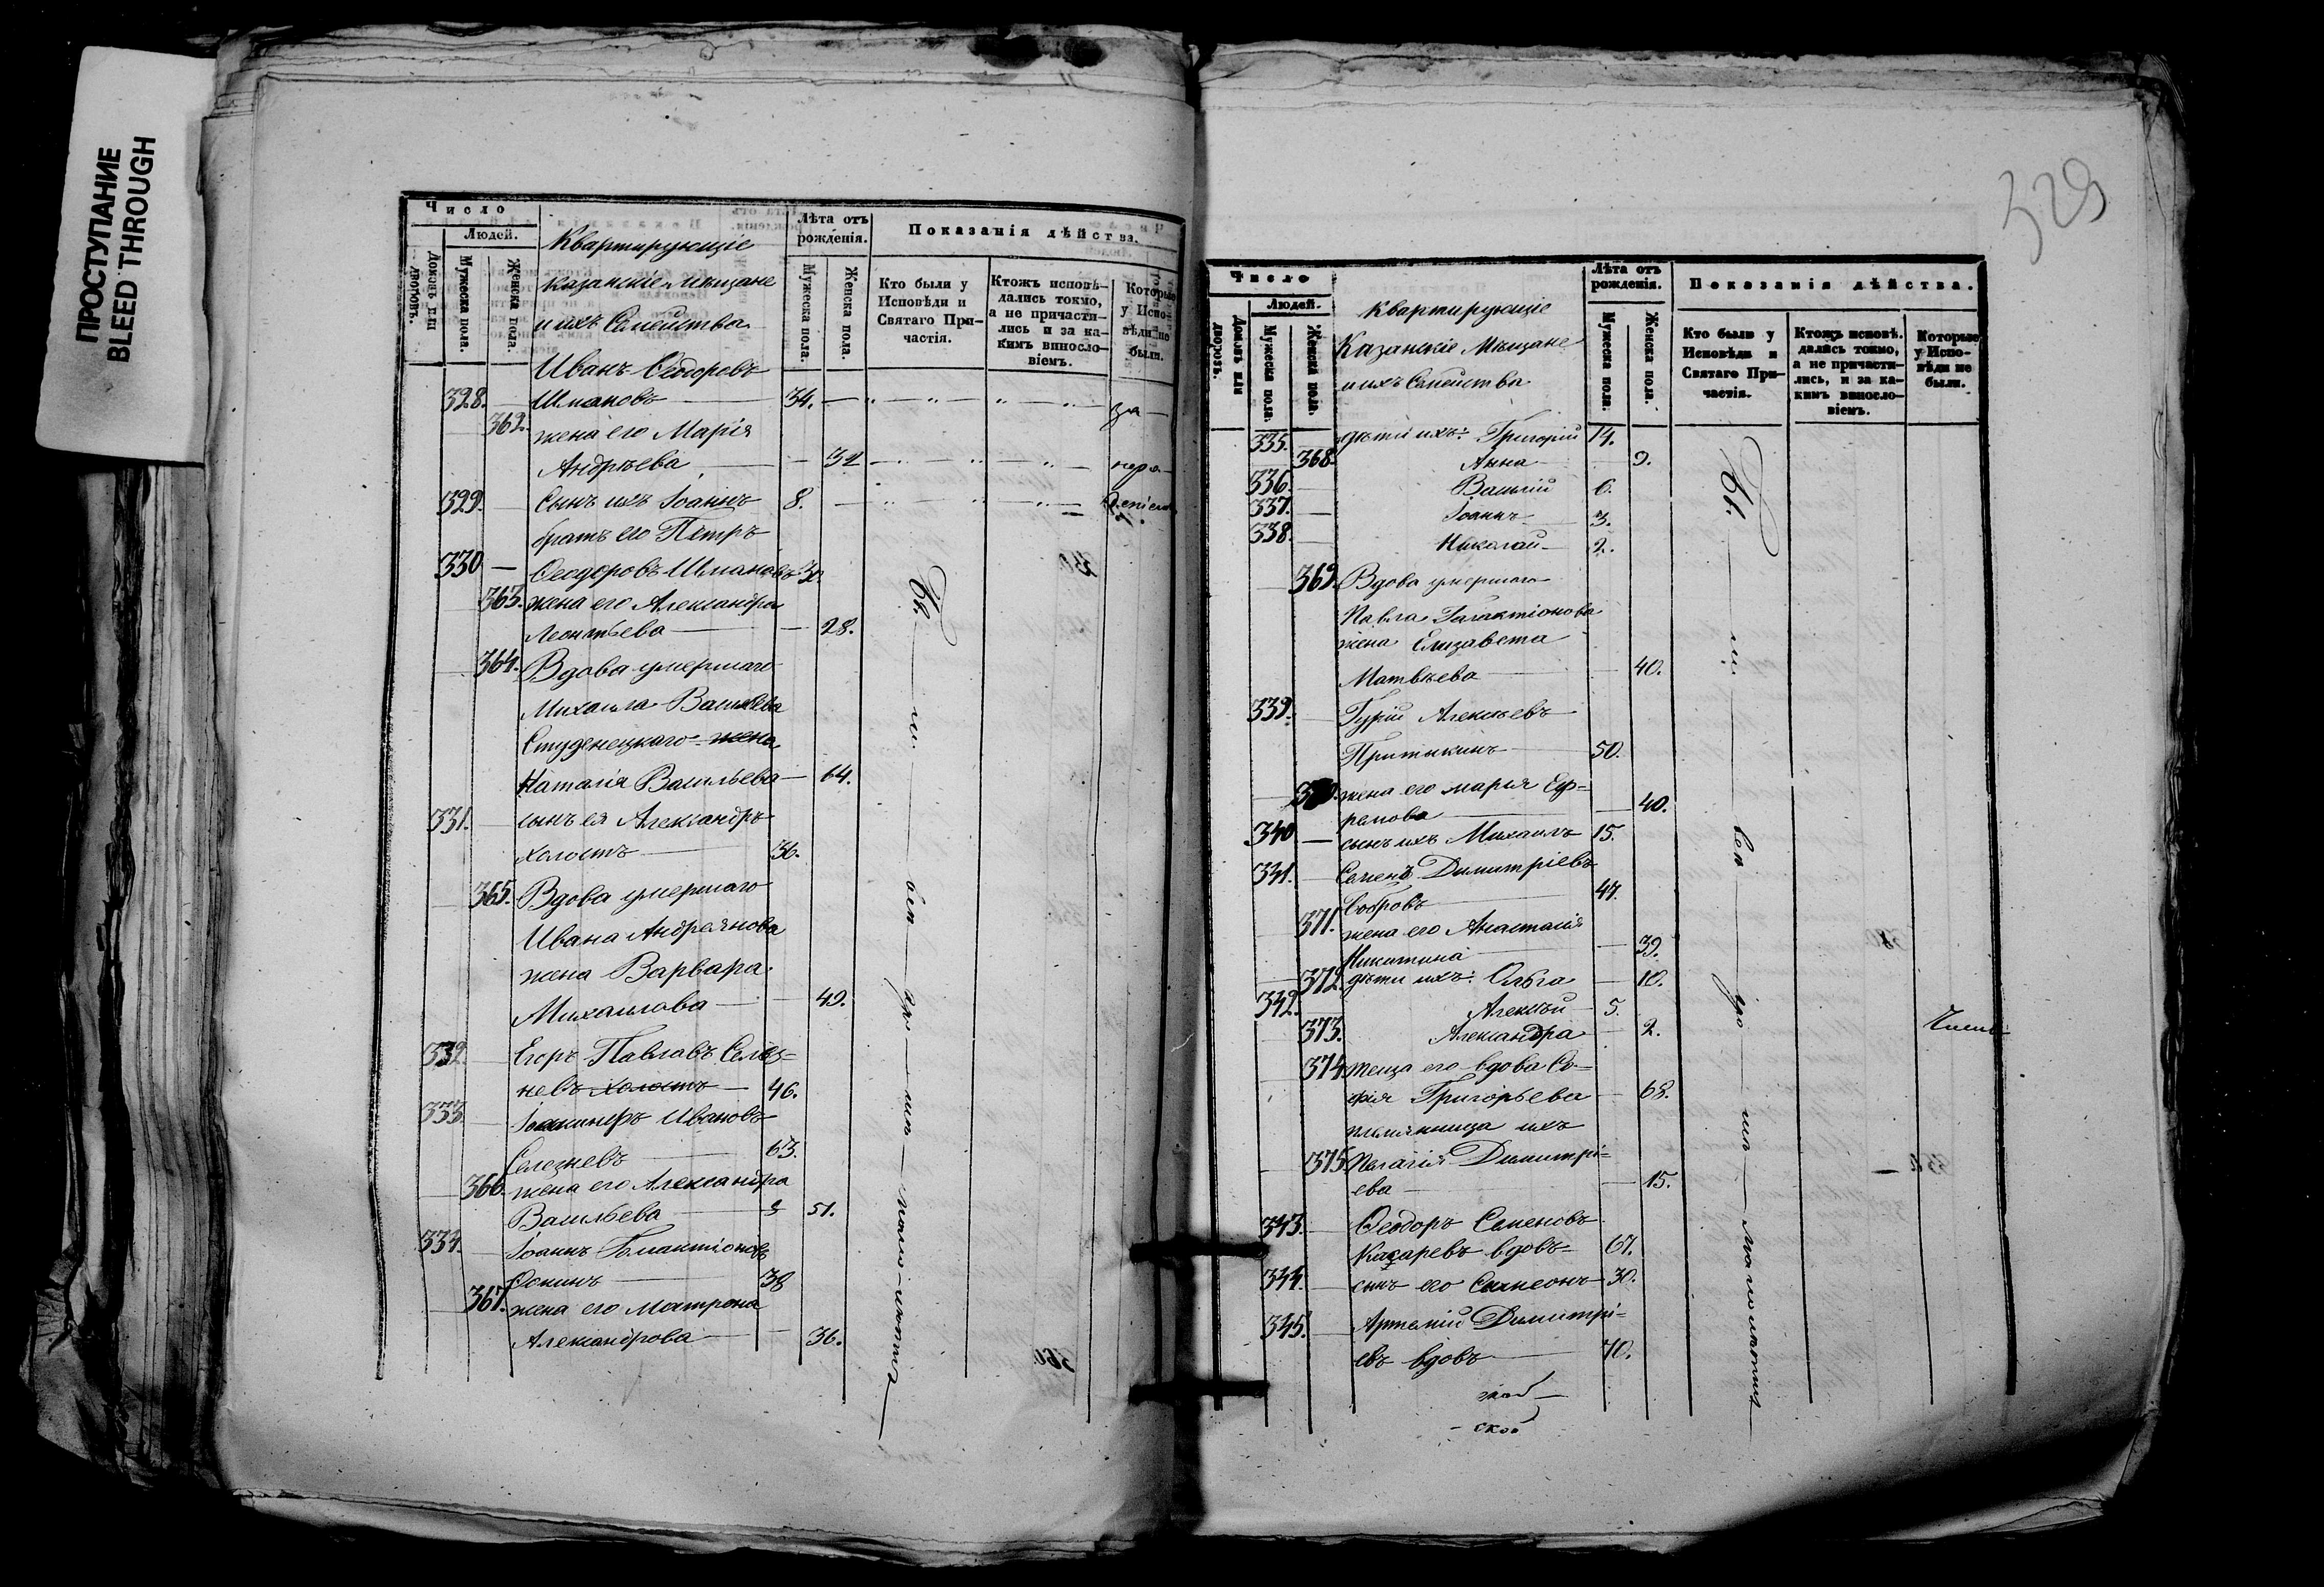 ПРОСТУПАНИЕ
BLEED THROUGH
Число
Людей.
Домовъ или дворовъ.
Мужеска пола.
Женска пола.
Квартирующіе
казанскіе мѣщане
и ихъ Семейства
Лѣта отъ рожденія.
Мужеска пола.
Женска пола.
Показанія дѣйства.
Кто были у Исповѣди и Святаго Причастія.
Ктожъ исповѣдались токмо, а не причастились и за какимъ винословіемъ.
Которые у Исповѣди не были.
Иванъ Ѳеодоровъ
328. — Шмановъ — 34. — за —
362. жена его Марія
Андрѣева — — нера —
329. — Сынъ ихъ Іоаннъ 8. —
братъ его Петръ
330 — Ѳеодоровъ Шмановъ 30
363. жена его Александра
Леонтьева — — 28.
364. Вдова умершаго
Михаила Васильева
Студенецкаго жена
Наталія Васильева — 64.
331. — сынъ ея Александръ
холостъ — 36.
365. Вдова умершаго
Ивана Андреянова
жена Варвара
Михаилова — — 49.
332. — Егоръ Павловъ Селез=
невъ холостъ — 46.
333. — Іоакинфъ Ивановъ
Селезневъ — 63.
366. жена его Александра
Васильева — 51.
334. — Іоаннъ Галактіоновъ
Ѳокинъ — 38
367. жена его Матрона
Александрова — — 36.
Вы — ш. — еп — уро — ип — мало-лютст
329
Число
Людей.
Домовъ или дворовъ.
Мужеска пола.
Женска пола.
квартирующіе
Казанскіе Мѣщане
и ихъ Семейства
Лѣта отъ рожденія.
Мужеска пола.
Женска пола.
Показанія дѣйства.
Кто были у Исповѣди и Святаго Причастія.
Ктожъ исповѣдались токмо, а не причастились, и за какимъ винословіемъ.
Которые у Исповѣди не были.
335. дѣти ихъ: Григорій 14.
368. Анна — 9.
336. — Василій 6.
337. — Іоаннъ 3.
338. — Николай — 2.
369. Вдова умершаго
Павла Галактіонова
жена Елизавета
Матвѣева — — 40.
339. — Гурій Алексѣевъ
Притыкинъ — 50.
370. жена его марья Еф=
ремова — — 40.
340 — сынъ ихъ Михаилъ 15.
341. — Семенъ Димитріевъ
Бобровъ — 47.
371. жена его Анастасія
Никитина — — 39.
372. дѣти ихъ: Ольга — 10.
342. Алексѣй 5.
373. Александра — 2.
374. теща его вдова Со=
фія Григорьева — 68.
племянница ихъ
375. Пелагія Димитрі=
ева — — 15.
343. — Ѳеодоръ Семеновъ
вдовъ — 67.
344. — сынъ его Симеонъ — 30.
345. — Артемій Димитрі=
евъ вдовъ — 70.